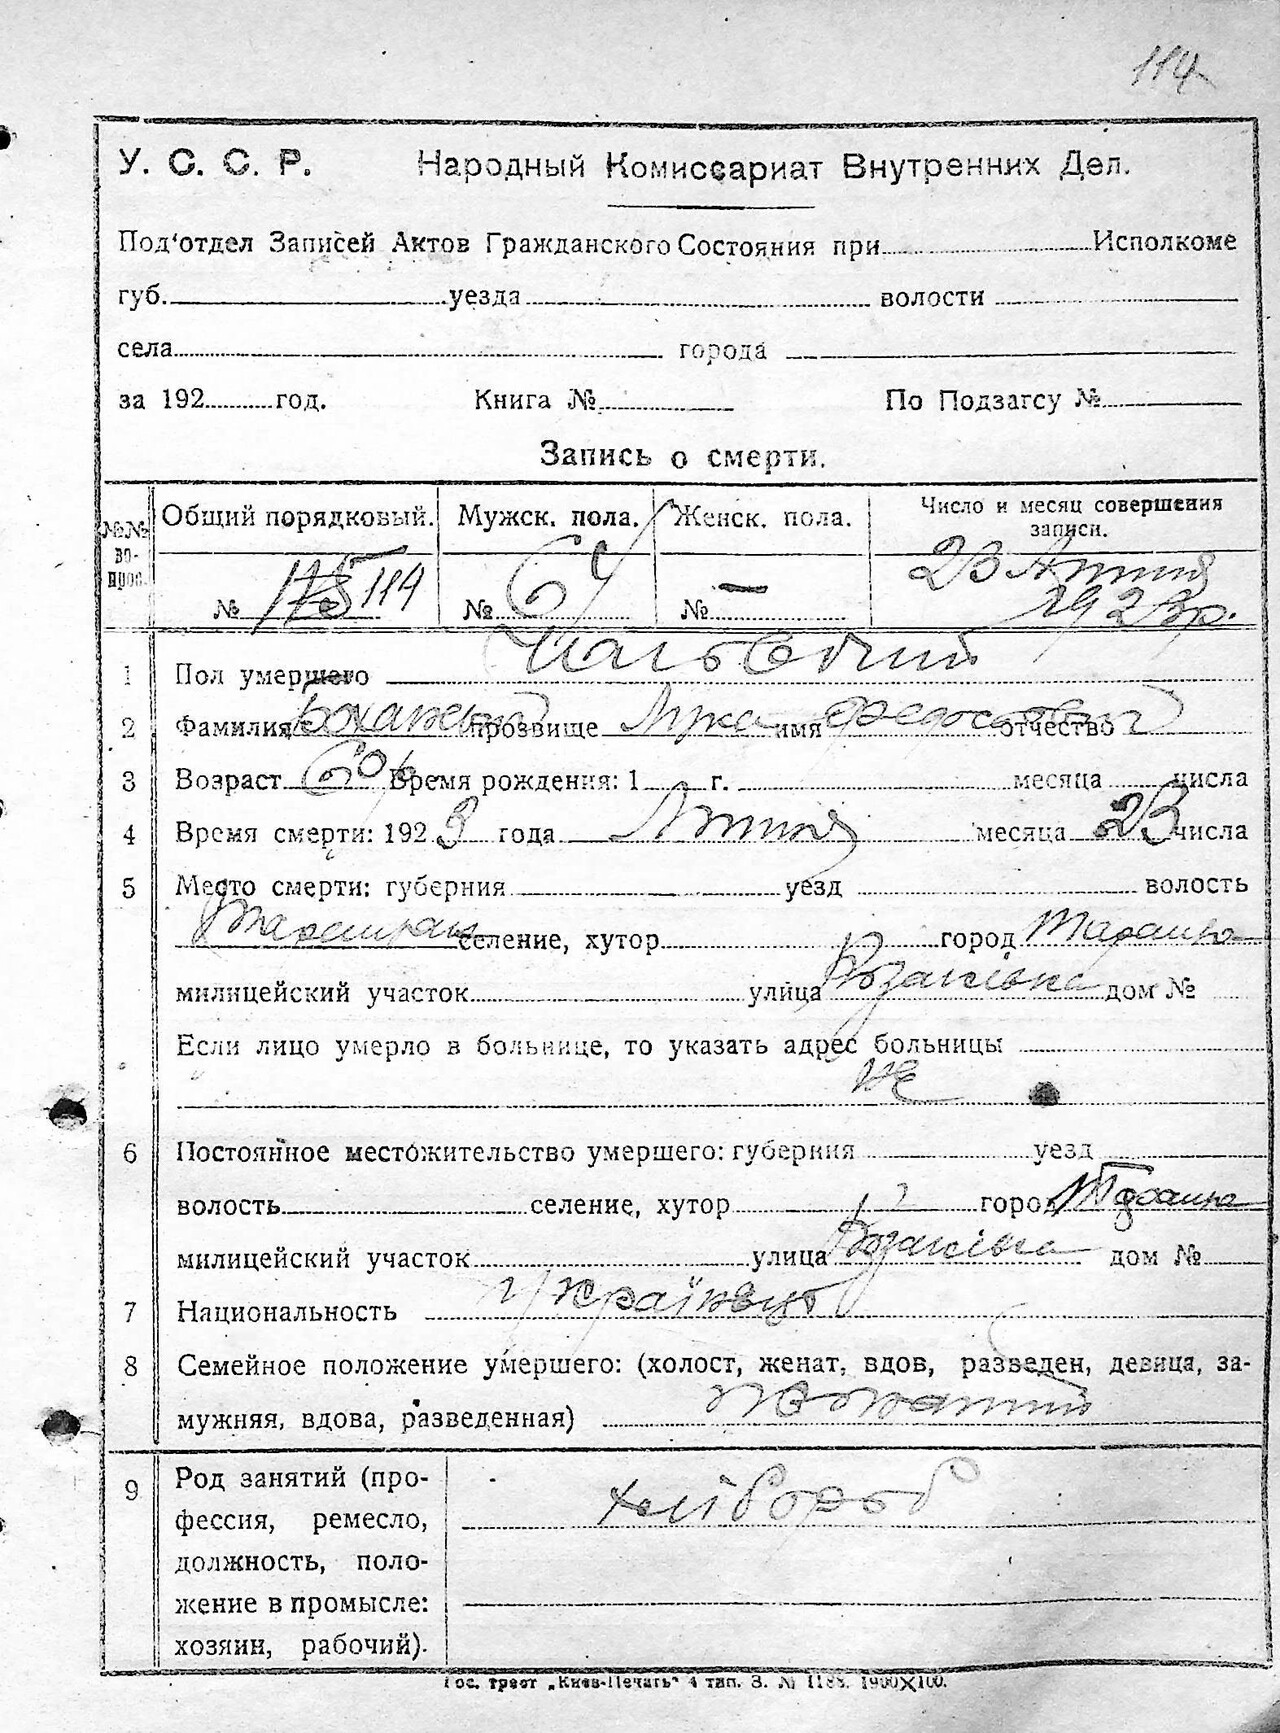 114
У. С. С. Р. Народный Комиссариат Внутренних Дел.
Под'отдел Записей Актов Гражданского Состояния при Исполкоме
губ. уезда волости
села города
за 192 год. Книга № По Подзагсу №
Запись о смерти.
№№ во-прос. Общий порядковый. Мужск. пола. Женск. пола. Число и месяц совершения записи.
№ 175 114 № 64 № — 23 Апріля 1923 р.
1 Пол умершего Чоловічий
2 Фамилия прозвище Лука имя отчество
3 Возраст 60 р. Время рождения: 1 г. месяца числа
4 Время смерти: 1923 года Апріля месяца 23 числа
5 Место смерти: губерния уезд волость
селение, хутор город Тараща
милицейский участок улица Козаківка дом №
Если лицо умерло в больнице, то указать адрес больницы
не
6 Постоянное местожительство умершего: губерния уезд
волость селение, хутор город Тараща
милицейский участок улица Козаківка дом №
7 Национальность Українец
8 Семейное положение умершего: (холост, женат, вдов, разведен, девица, за-
мужняя, вдова, разведенная)
9 Род занятий (про-
фессия, ремесло,
должность, поло-
жение в промысле:
хозяин, рабочий).
хлібороб
Гос. трест „Киев-Печать" 4 тип. З. № 1188. 1900X100.